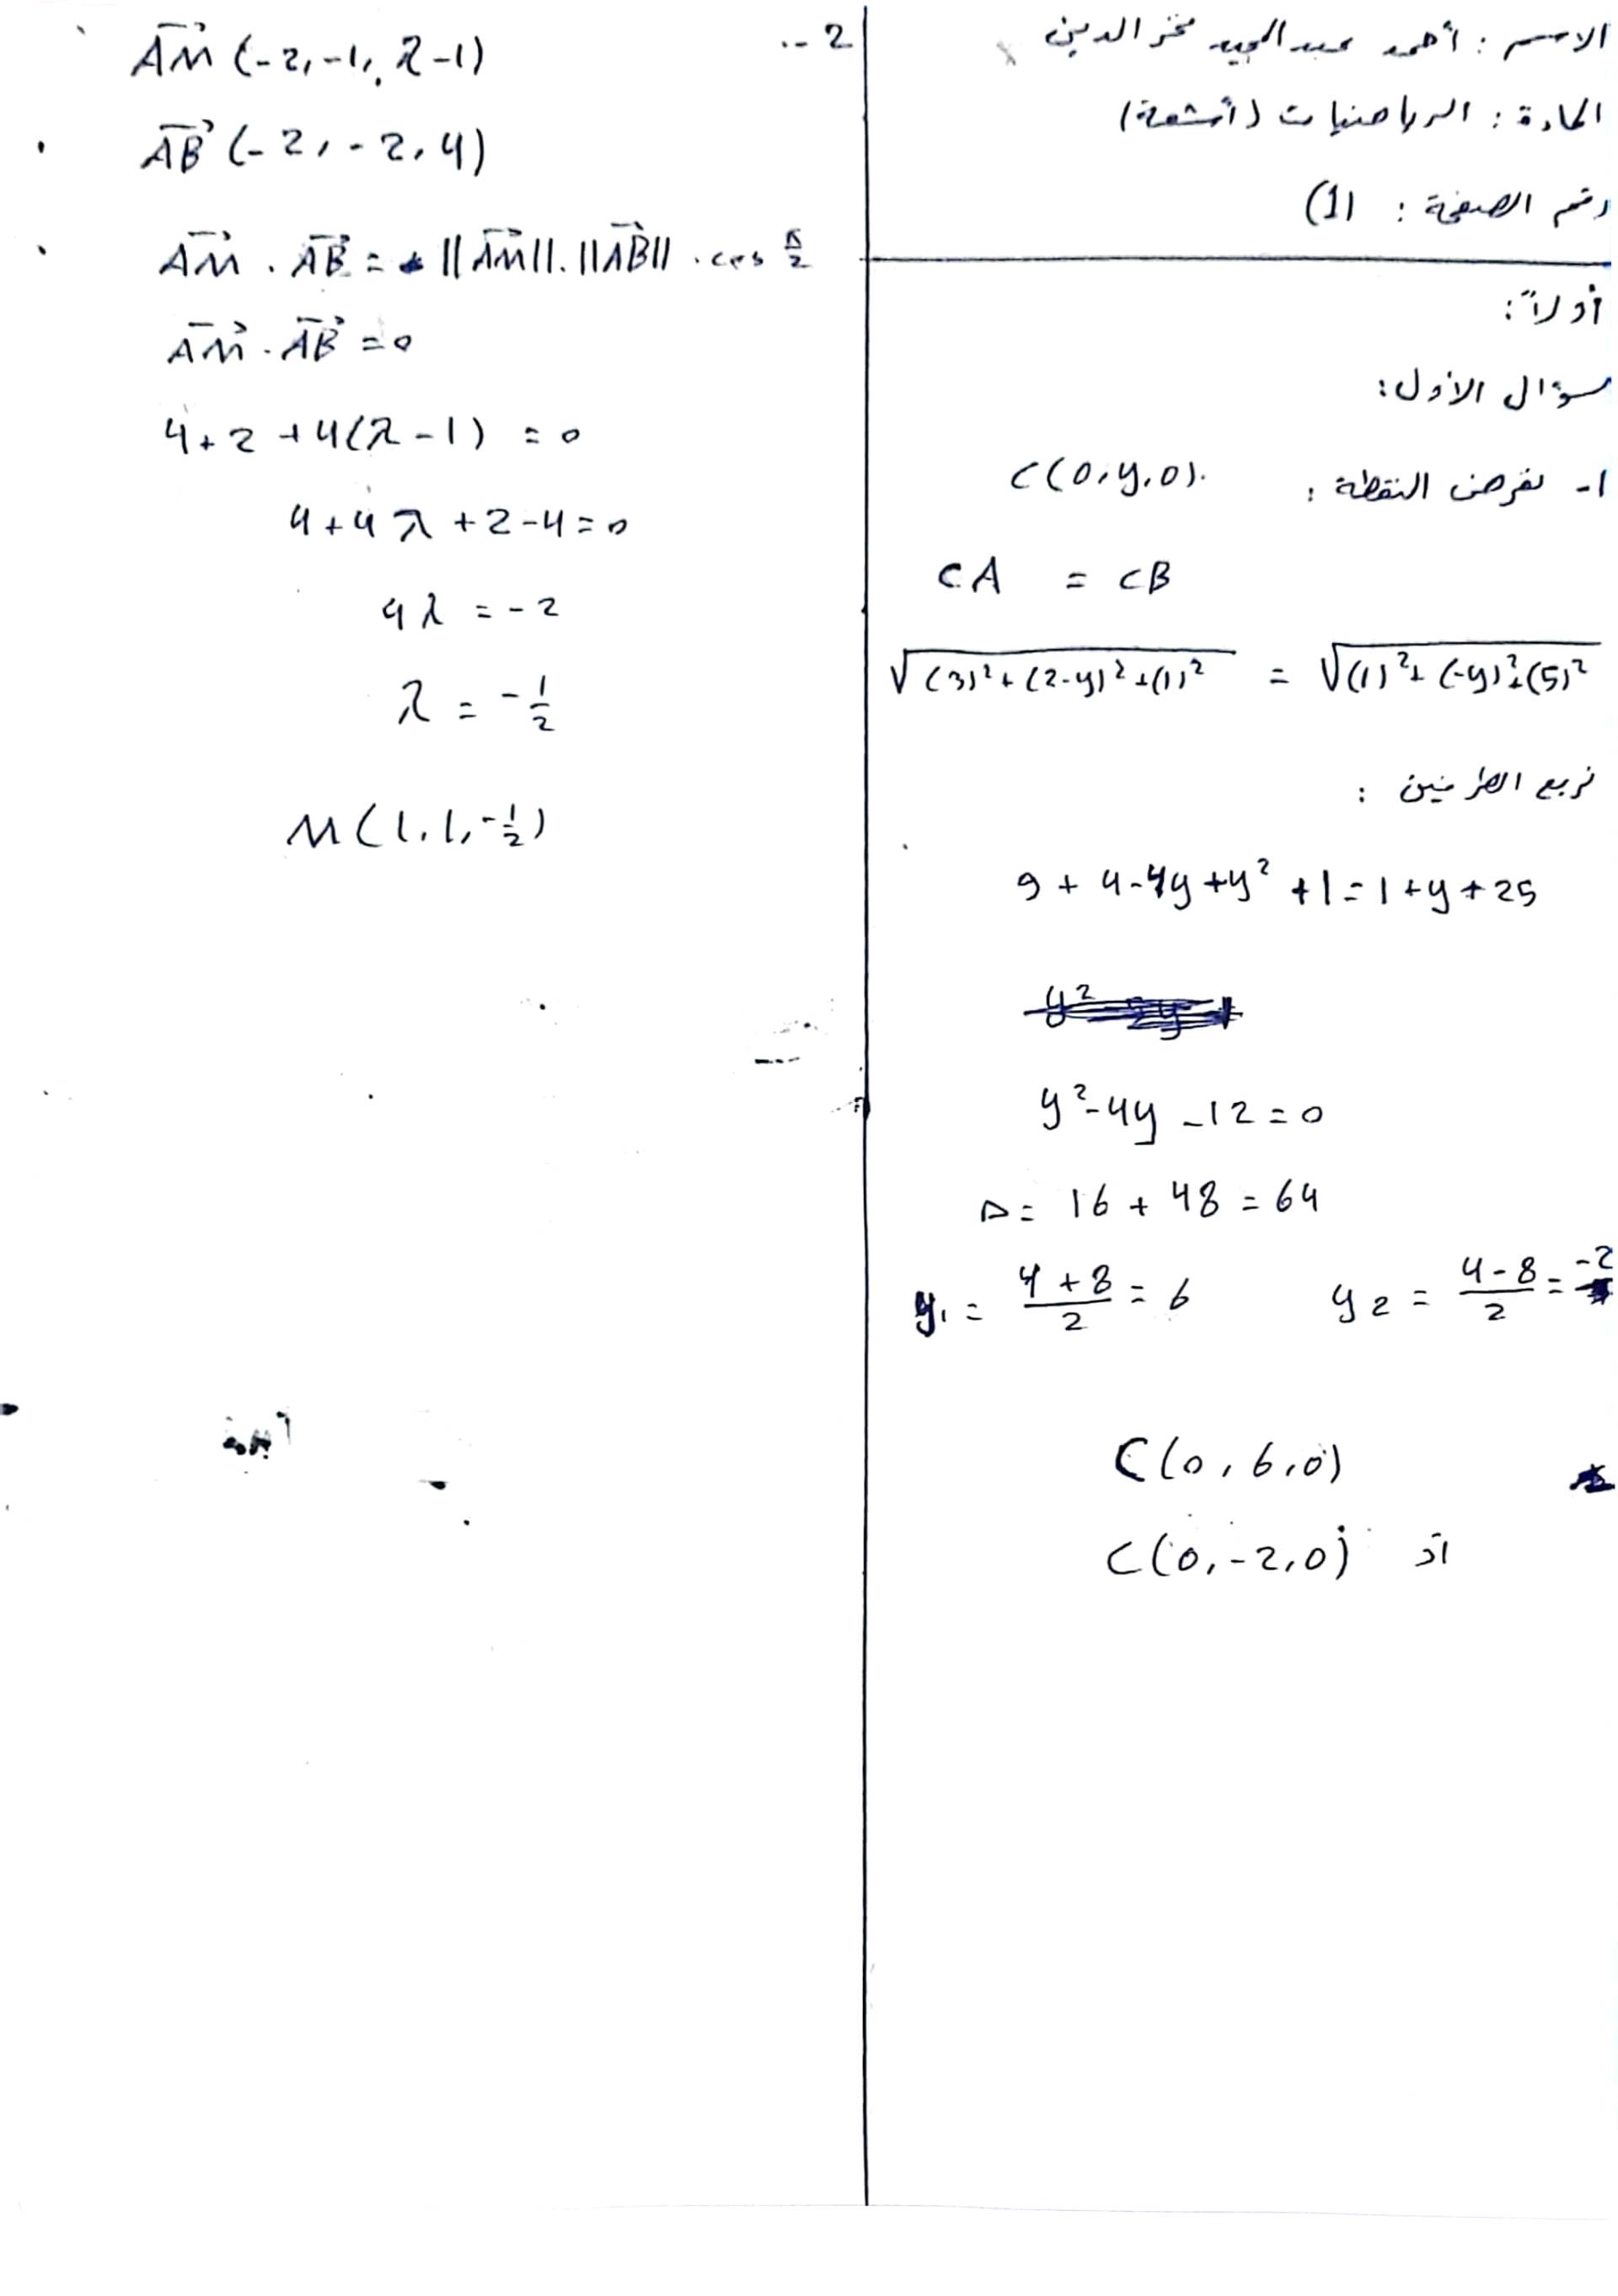 الاسم : أحمد عبد المجيد فخر الدين
المادة : الرياضيات (أشعة)
رقم الصفحة : (1)
أولاً :
سؤال الأول :
1- نفرض النقطة : C(0,y,0).
CA = CB
√((3)²+(2-y)²+(1)²) = √((1)²+(-y)²+(5)²)
نربع الطرفين :
9 + 4-4y+y² +1=1+y+25
y²-4y-12=0
Δ= 16 + 48 = 64
y₁ = (4+8)/2 = 6 y₂ = (4-8)/2 = -2
C(0,6,0)
أو C(0,-2,0)
2-
AM→ (-2,-1,λ-1)
AB→ (-2,-2,4)
AM→ . AB→ = ||AM→||.||AB→|| .cos π/2
AM→ . AB→ = 0
4+2+4(λ-1) = 0
4+4λ+2-4=0
4λ = -2
λ = -1/2
M(1,1,-1/2)